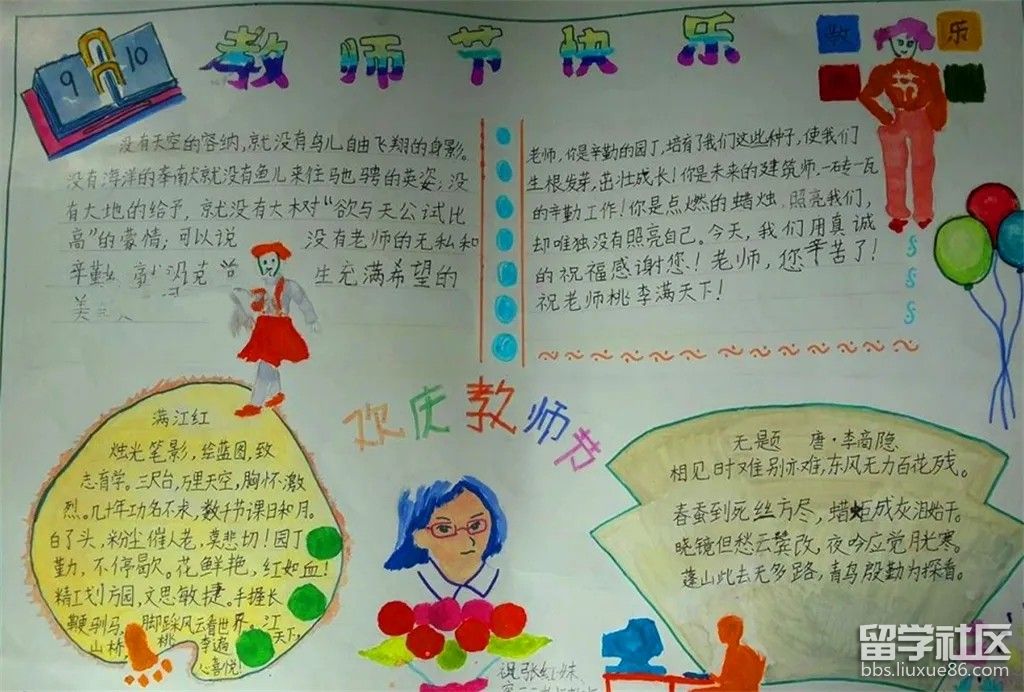 教师节快乐
9 10
教 乐
节
没有天空的容纳,就没有鸟儿自由飞翔的身影。
没有海洋的奉献就没有鱼儿来往驰骋的英姿;没
有大地的给予,就没有大树“欲与天公试比
高”的豪情;可以说 没有老师的无私和
辛勤 生充满希望的
美
老师,你是辛勤的园丁,培育了我们这些种子,使我们
生根发芽,茁壮成长!你是未来的建筑师,一砖一瓦
的辛勤工作!你是点燃的蜡烛,照亮我们,
却唯独没有照亮自己。今天,我们用真诚
的祝福感谢您!老师,您辛苦了!
祝老师桃李满天下!
欢庆教师节
满江红
烛光笔影,绘蓝图,致
志育学。三尺台,万里天空,胸怀激
烈。几十年功名不求,数千节课日和月。
白了头,粉尘催人老,莫悲切!园丁
勤,不停歇。花鲜艳,红如血!
精工划方园,文思敏捷。手握长
鞭驯马,脚踩风云看世界。江
山桥 桃李遍天下,
心喜悦!
无题 唐·李商隐
相见时难别亦难,东风无力百花残。
春蚕到死丝方尽,蜡炬成灰泪始干。
晓镜但愁云鬓改,夜吟应觉月光寒。
蓬山此去无多路,青鸟殷勤为探看。
祝张红妹
留学社区
bbs.liuxue86.com